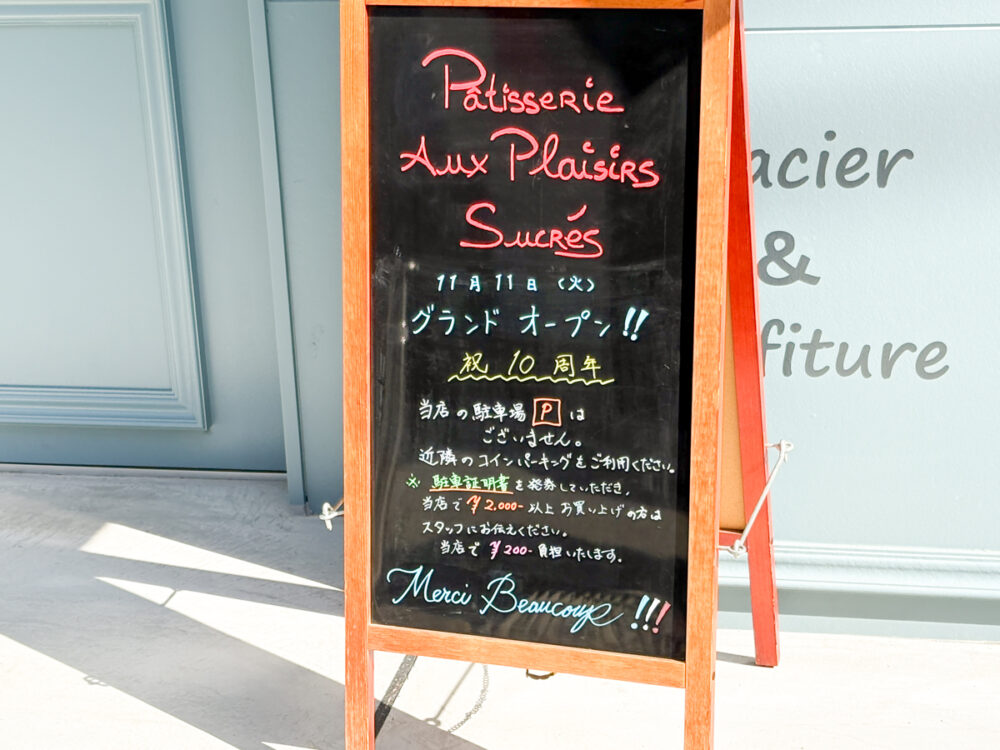 Pâtisserie
Aux Plaisirs
Sucrés
11月11日(火)
グランドオープン!!
祝10周年
当店の駐車場 P は
ございません。
近隣のコインパーキングをご利用ください。
※駐車証明書を発券していただき、
当店で¥2,000-以上お買い上げの方は
スタッフにお伝えください。
当店で¥200-負担いたします。
Merci Beaucoup !!!
acier
&
fiture